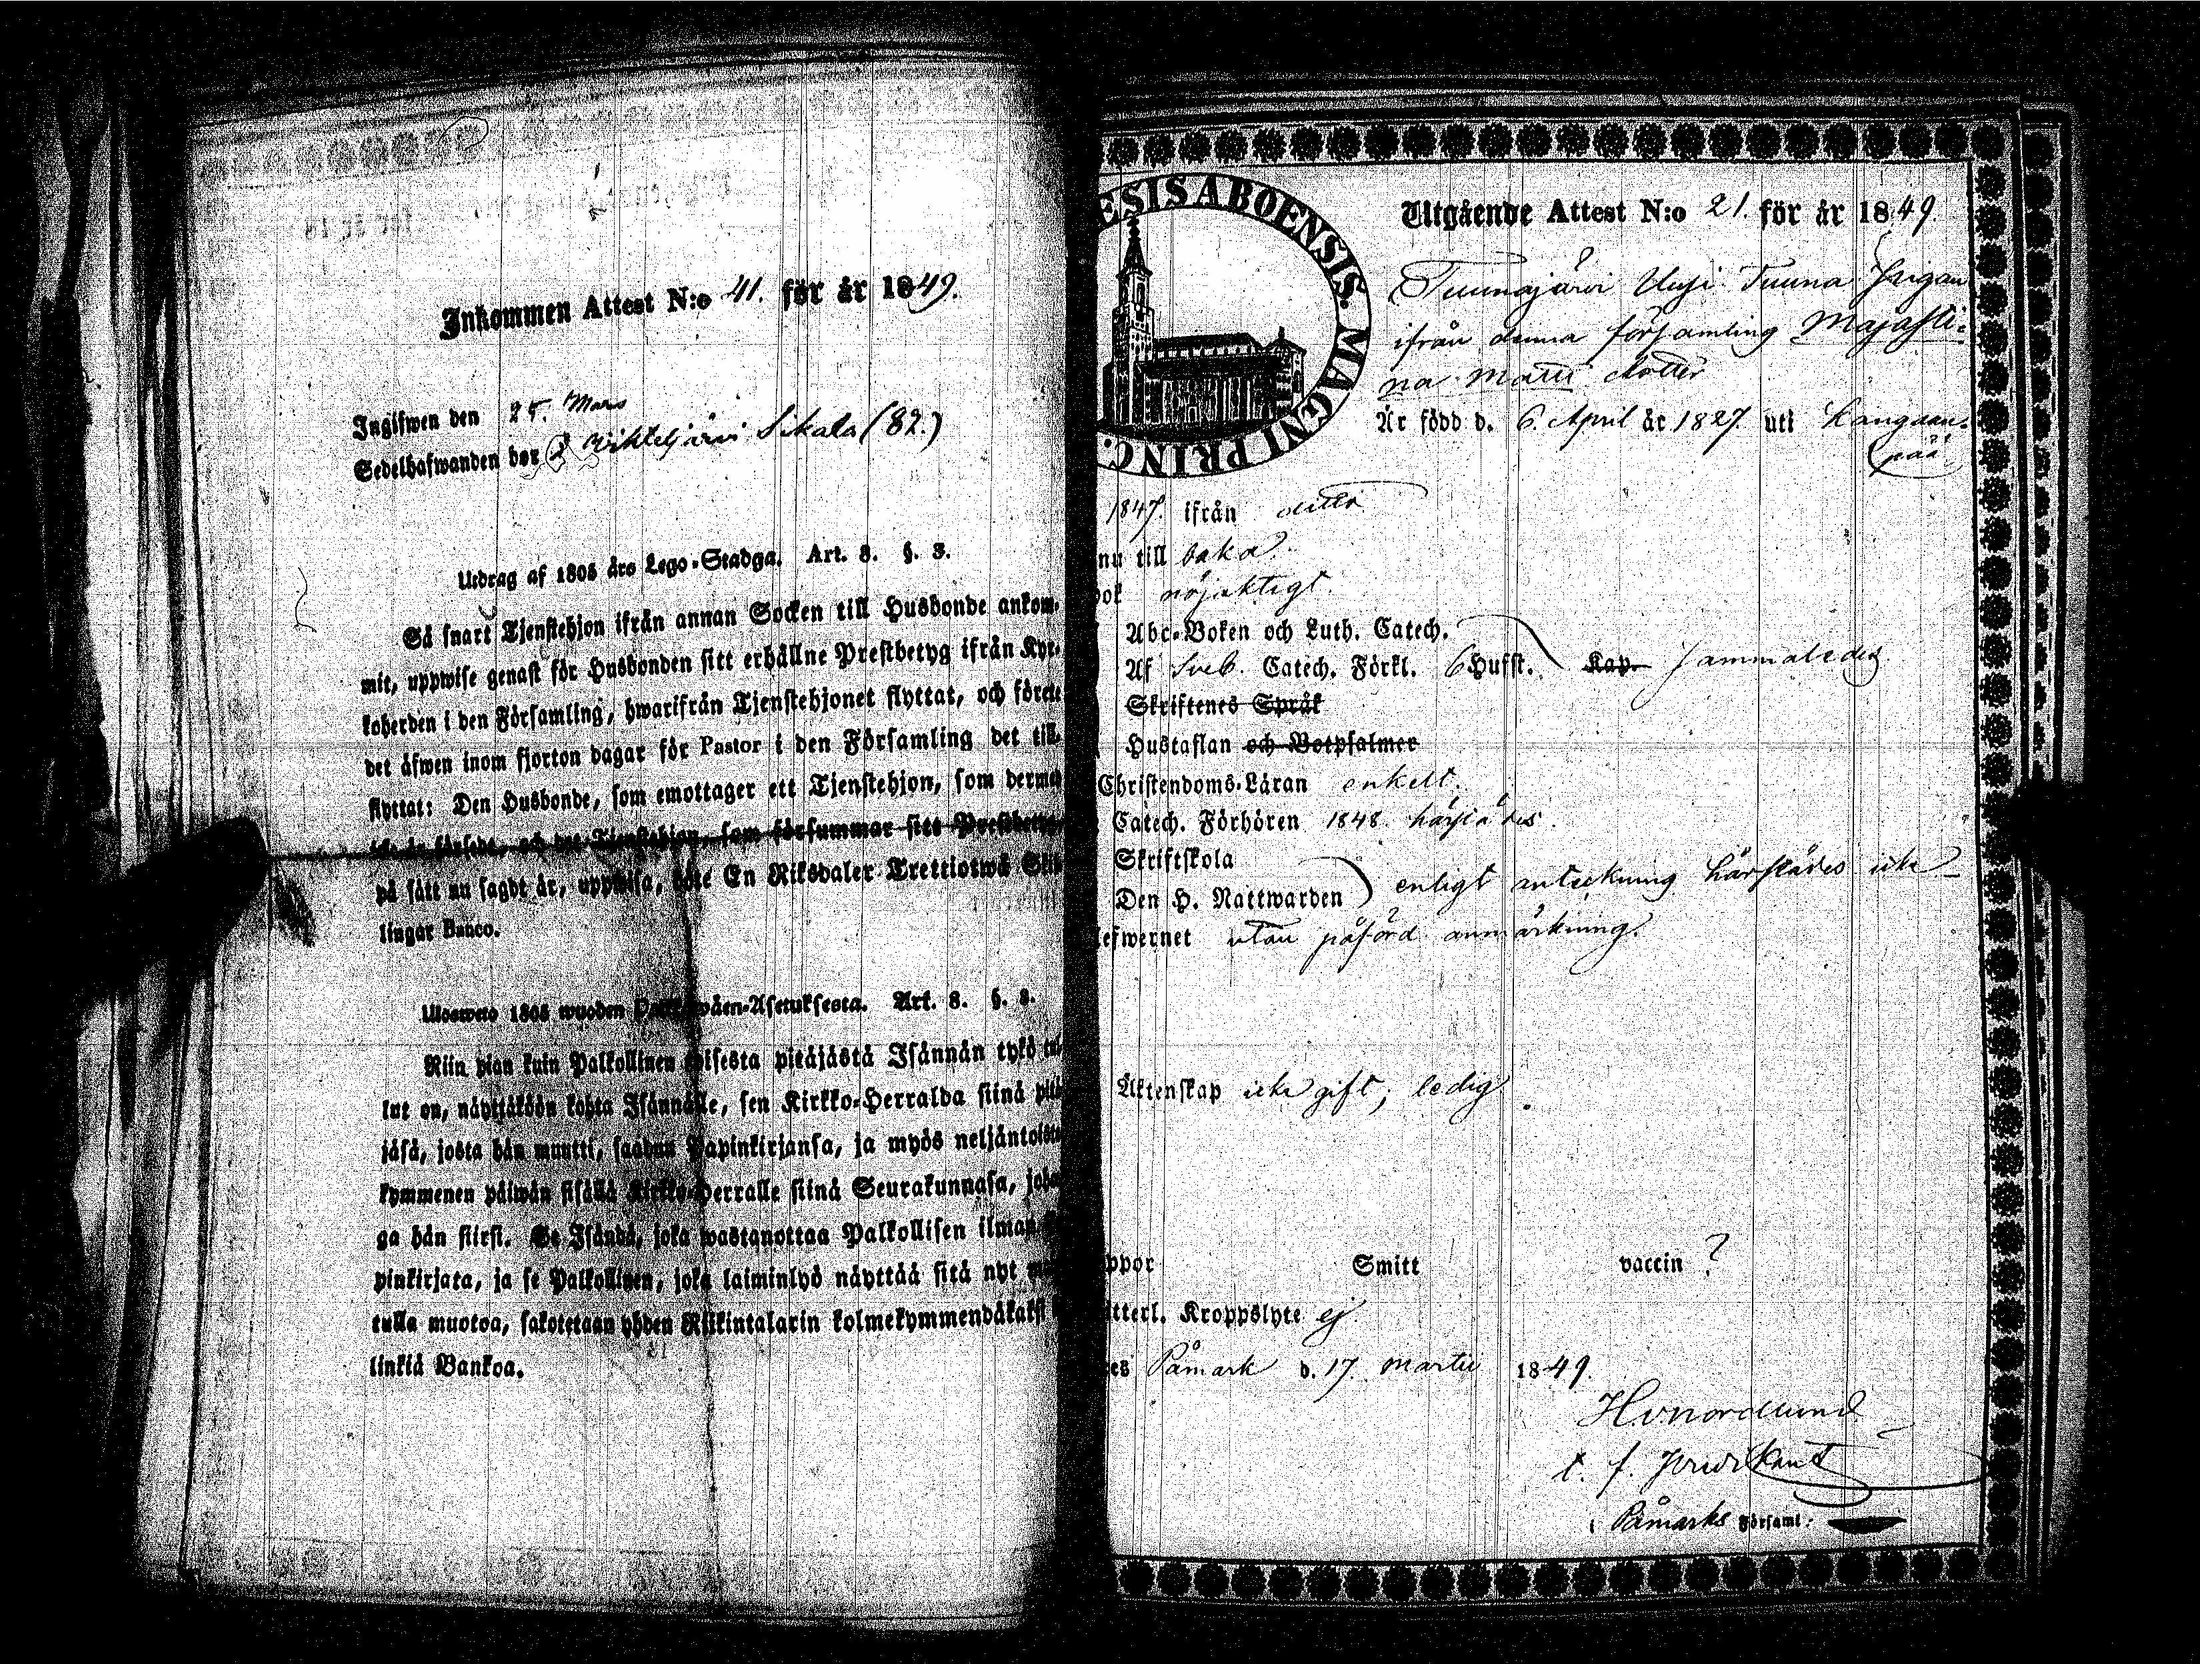 Inkommen Attest N:o 41. för år 1849.
Ingifwen den 25. Mars
Sedelhafwanden bor i Wihteljärvi Sikala (82.)
Utdrag af 1805 års Lego-Stadga. Art. 8. §. 3.
Så snart Tjenstehjon ifrån annan Socken till Husbonde ankom-
mit, uppwise genast för Husbonden sitt erhållne Prestbetyg ifrån Kyr-
koherden i den Församling, hwarifrån Tjenstehjonet flyttat, och förete
det äfwen inom fjorton dagar för Pastor i den Församling det till-
flyttat: Den Husbonde, som emottager ett Tjenstehjon, som dermed
icke är försedt, och det Tjenstehjon, som försummar sitt Prestbetyg,
på sätt nu sagdt är, uppwisa, böte En Riksdaler Trettiotwå Skil-
lingar Banco.
Ulosweto 1805 wuoden Asetuksesta. Art. 8. §. 3.
Niin pian kuin Palkollinen toisesta pitäjästä Isännän tykö tul-
lut on, näyttäköön kohta Isännälle, sen Kirkko-Herralda siinä pitä-
jäsä, josta hän muutti, saadun Papinkirjansa, ja myös neljäntoista
kymmenen päiwän sisällä Kirkko-Herralle siinä Seurakunnasa, johon-
ga hän siirsi. Se Isändä, joka wastanottaa Palkollisen ilman
pinkirjata, ja se Palkollinen, joka laiminlyö näyttää sitä nyt
tulla muotoa, sakotetaan yhden Riikintalarin kolmekymmendäkaksi
linkiä Bankoa.
ESIS ABOENSIS. MAGNI PRINC.
Utgående Attest N:o 21. för år 1849.
Tuunajärvi Uusi Tuuna Pigan
ifrån denna församling Majasti-
na Matts dotter
Är född d. 6. April år 1827. uti Kangaan-
pää.
1847. ifrån ditto
nu till baka.
bok nöjaktigt.
Abc-Boken och Luth. Catech.
Af Sveb. Catech. Förkl. 6 Hufst. Kap. sammaledes
Skriftenes Språk
Hustaflan och Botpsalmer
Christendoms-Läran enkelt.
Catech. Förhören 1848. härstädes.
Skriftskola
Den H. Nattwarden enligt anteckning härstädes icke
efwernet utan påförd anmärkning.
Äktenskap icke gift; ledig.
ppor Smitt vaccin ?
tterl. Kroppslyte ej
es Påmark d. 17. Martii 1849.
Hvnordlund
t. f. Predikant
i Påmarks Församl: